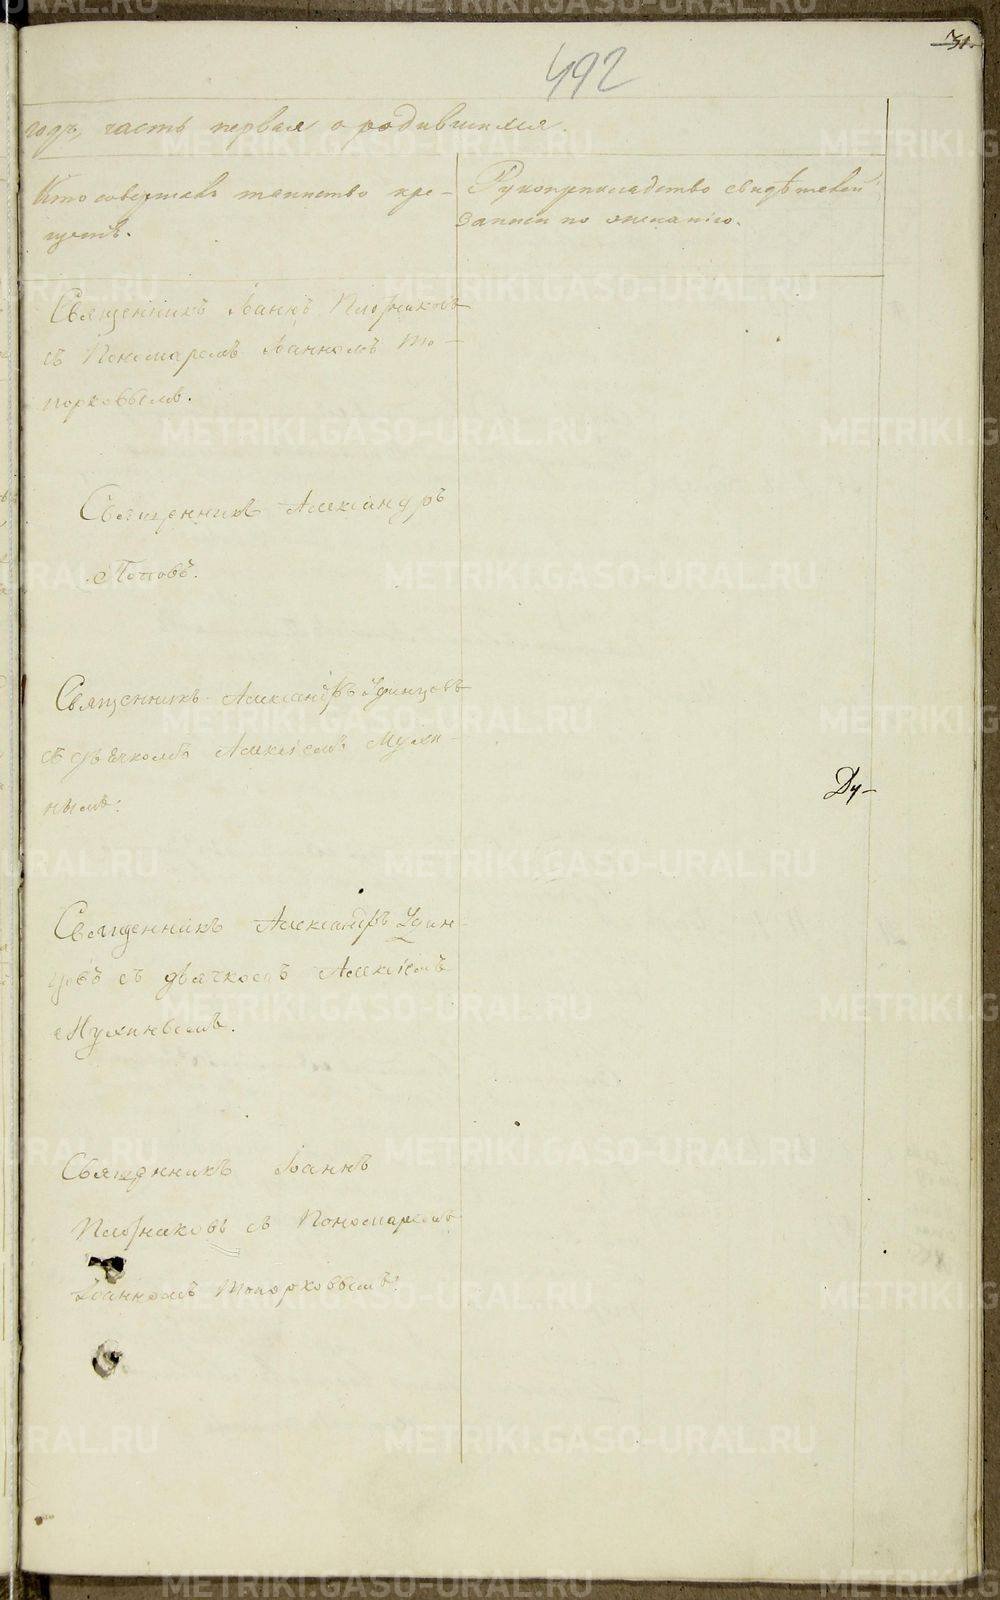 31.
492
годъ, часть первая о родившихся.
Кто совершалъ таинство кре-
щенія.
Рукоприкладство свидѣтелей
записи по желанію.
Священникъ Іоаннъ Плотниковъ
съ Пономаремъ Іоанномъ То-
порковымъ.
Священникъ Александръ
Поповъ.
Священникъ Александръ Удинцовъ
съ дьячкомъ Алексіемъ Мухи-
нымъ.
Ду-
Священникъ Александръ Удин-
цовъ съ дьячкомъ Алексіемъ
Мухинымъ.
Священникъ Іоаннъ
Плотниковъ съ Пономаремъ
Іоанномъ Топорковымъ.
METRIKI.GASO-URAL.RU